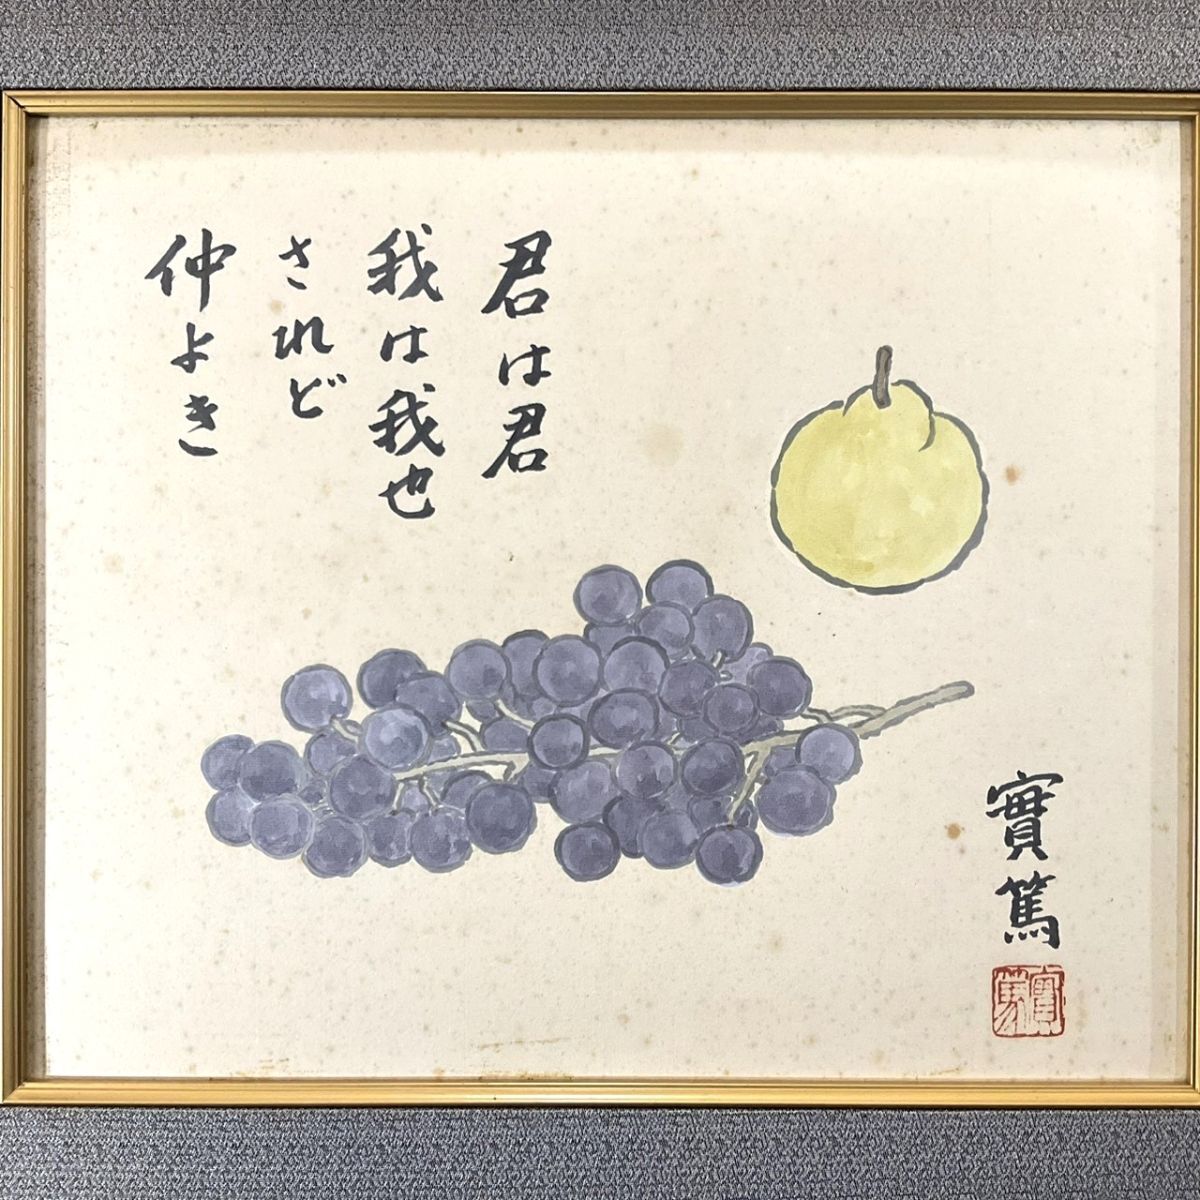 君は君
我は我也
されど
仲よき
實篤
實篤